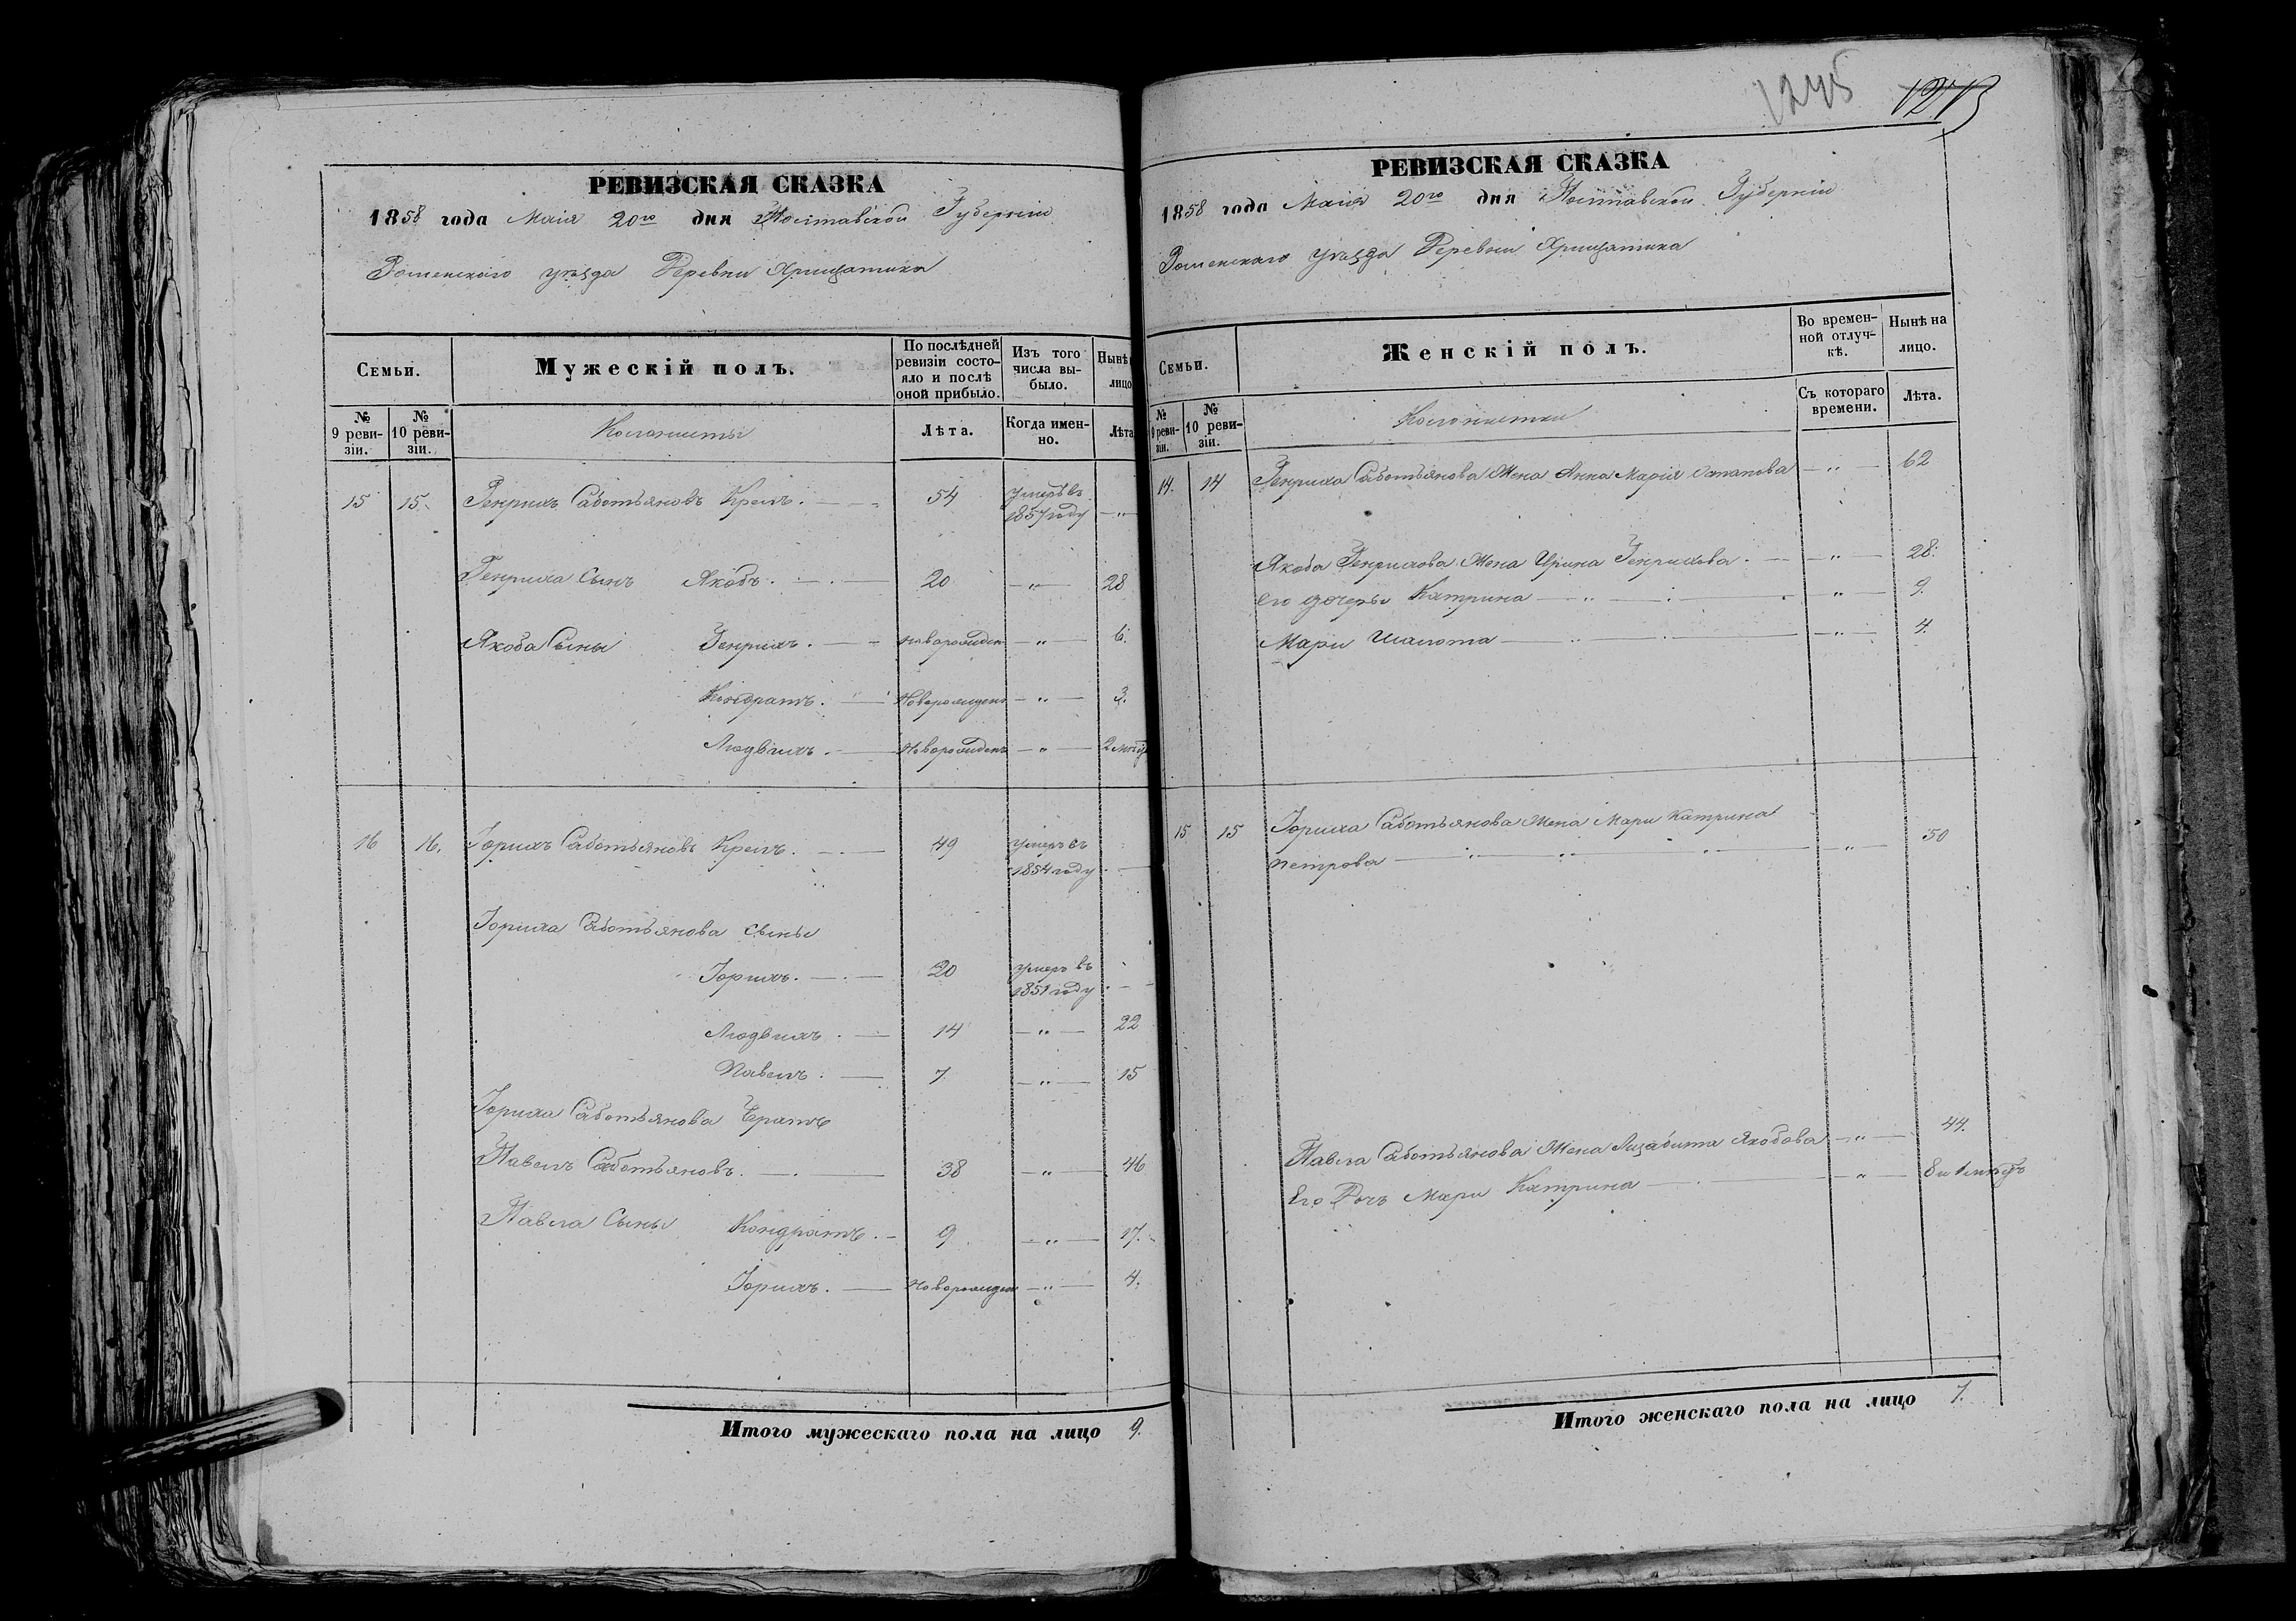 1245
РЕВИЗСКАЯ СКАЗКА
1858 года Маія 20го дня Полтавской Губерніи
Роменскаго уѣзда Деревни Хрищатика
Семьи.
Мужескій полъ.
По послѣдней ревизіи состояло и послѣ оной прибыло.
Изъ того числа выбыло.
Нынѣ
лицо
№ 9 ревизіи.
№ 10 ревизіи.
Колонисты
Лѣта.
Когда именно.
Лѣта
15 15. Генрихъ Саботьяновъ 54 умеръ въ
1857 году
Генриха Сынъ Якобъ. 20 — „ — 28
Якоба Сыны Генрихъ. новорожден — „ — 6.
Кондратъ. Новорожденъ — „ — 3.
Людвихъ. Новорожденъ — „ — 2
16 16. Іорихъ Саботьяновъ 49 умеръ въ
1854 году
Іориха Саботьянова сыны
Іорихъ. 20 умеръ въ
1851 году
Людвихъ. 14 — „ — 22
Павелъ. 7. — „ — 15
Іориха Саботьянова братъ
Павелъ Саботьяновъ. 38 — „ — 46
Павла Сыны Кондратъ. 9 — „ — 17.
Іорихъ. Новорожден — „ — 4.
Итого мужескаго пола на лицо 9.
РЕВИЗСКАЯ СКАЗКА
1858 года Маія 20го дня Полтавской Губерніи
Роменскаго уѣзда Деревни Хрищатика
Семьи.
Женскій полъ.
Во временной отлучкѣ.
Нынѣ на лицо.
№ 9 ревизіи.
№ 10 ревизіи.
Колонистки
Съ котораго времени.
Лѣта.
14. 14 Генриха Саботьянова Жена Анна Марія — „ — 62
Якоба Генрихова Жена Ирина Генрихова. — „ — 28.
Его дочеры Катрина — „ — 9.
Мари Шалота — „ — 4.
15 15 Іориха Саботьянова Жена Мари Катрина
Петрова — „ — 50
Павла Саботьянова Жена Лизабита Якобова — „ — 44.
Его Дочь Мари Катрина — „ — 8
Итого женскаго пола на лицо 7.